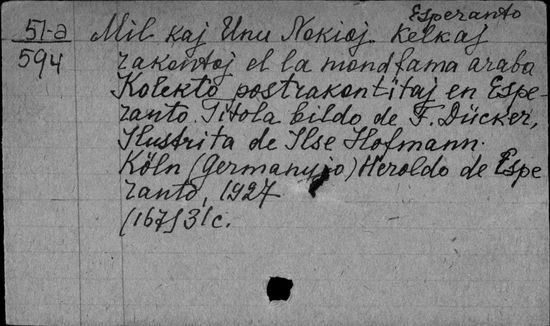 Esperanto
51-a Mil kaj Unu Nokioj. Kelkaj
594 rakontoj el la mondfama araba
Kolekto postrakontitaj en Espe-
ranto. Titola bildo de F. Dücker,
Ilustrita de Ilse Hofmann.
Köln (Germanyjo) Heroldo de Espe
ranto, 1927
(167) 31c.